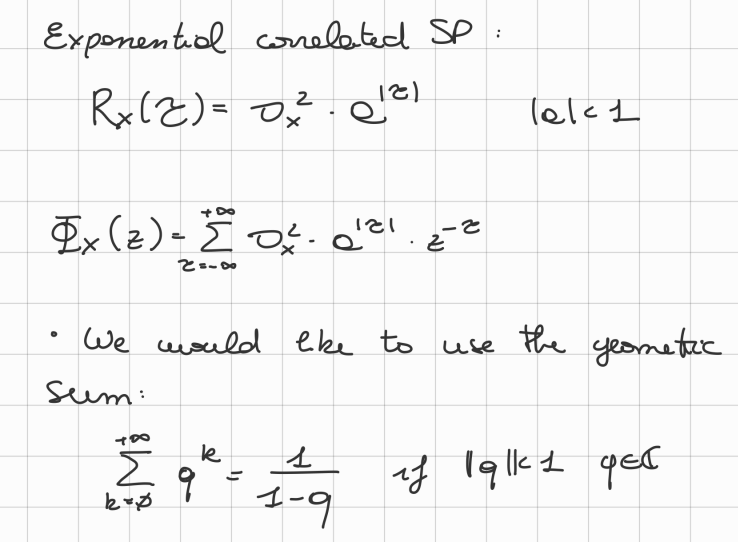 Exponential correlated SP :
Rₓ(τ) = σₓ² · a^|τ| |a| < 1
Φₓ(z) = Σ_{τ=-∞}^{+∞} σₓ² · a^|τ| · z^{-τ}
• We would like to use the geometric
sum:
Σ_{k=0}^{+∞} q^k = 1/(1-q) if ||q|| < 1 q∈ℂ